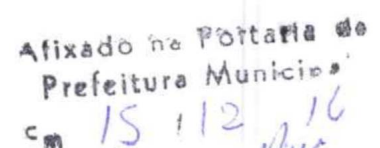 Afixado na Portaria do
Prefeitura Municipal
Em 15 / 12 / 16